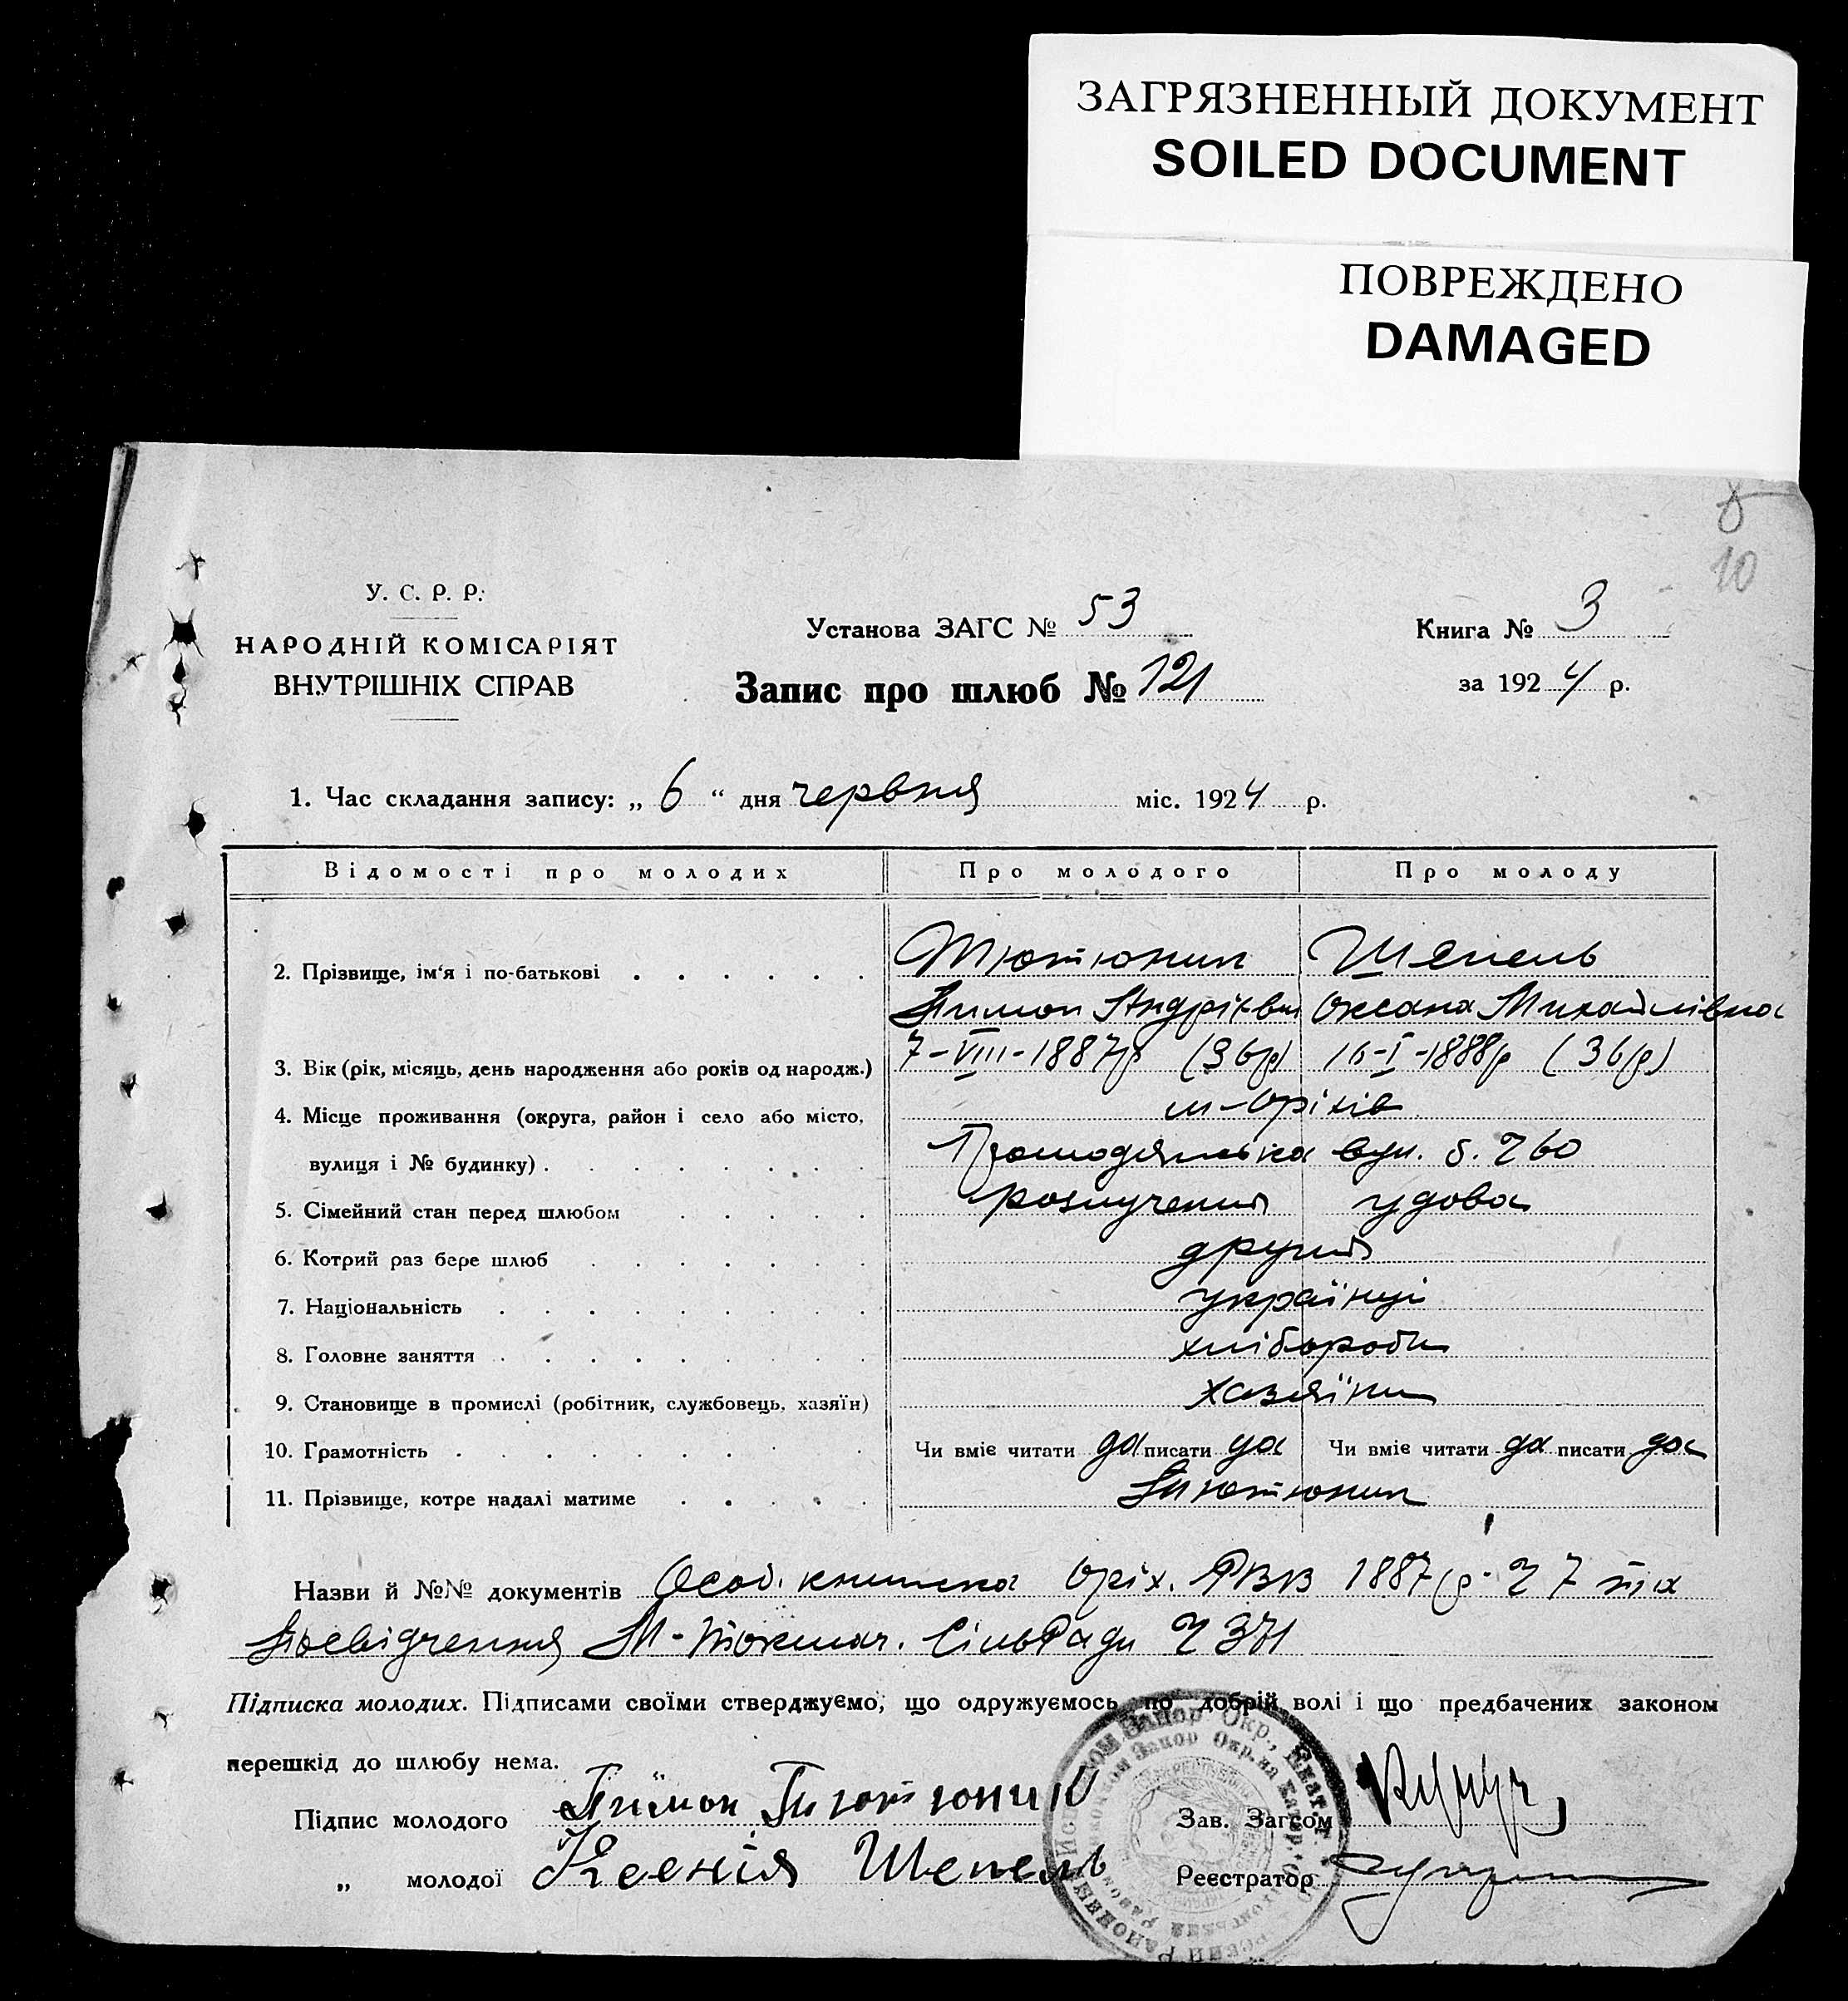 ЗАГРЯЗНЕННЫЙ ДОКУМЕНТ
SOILED DOCUMENT
ПОВРЕЖДЕНО
DAMAGED
8
10
У. С. Р. Р.
НАРОДНІЙ КОМІСАРІЯТ
ВНУТРІШНІХ СПРАВ
Установа ЗАГС № 53
Запис про шлюб № 121
Книга № 3
за 1924 р.
1. Час складання запису: „ 6 “ дня червня міс. 1924 р.
Відомості про молодих Про молодого Про молоду
2. Прізвище, ім'я і по-батькові Тютюник Шепель
Тимон Андрієвич Оксана Михайлівна
3. Вік (рік, місяць, день народження або років од народж.) 7-VIII-1887р (36р) 16-I-1888р (36р)
4. Місце проживання (округа, район і село або місто, м-Оріхів
вулиця і № будинку) Громодянська вул. б. Ч 60
5. Сімейний стан перед шлюбом розлучений удова
6. Котрий раз бере шлюб другий
7. Національність українці
8. Головне заняття хлібороби
9. Становище в промислі (робітник, службовець, хазяїн) хазяїни
10. Грамотність Чи вміє читати да писати да Чи вміє читати да писати да
11. Прізвище, котре надалі матиме Тютюник
Назви й №№ документів Особ. книжка Оріх. РВВ 1887р. Ч 7 та
посвідчення М-Токмач. СільРади Ч 371
Підписка молодих. Підписами своїми стверджуємо, що одружуємось по добрій волі і що предбачених законом
перешкід до шлюбу нема.
Підпис молодого Тимон Тютюник Зав. Загсом
„ молодої Ксенія Шепель Реєстратор